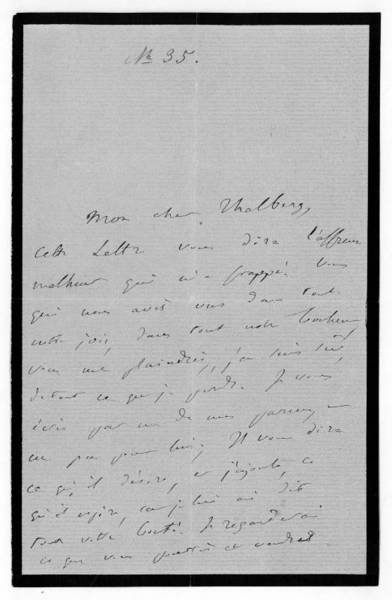 No 35.
Mon cher Thalberg,
cette lettre vous dira l'affreux
malheur qui m'a frappée. Vous
qui nous avez vus dans tout
notre joie, dans tout notre bonheur
vous me plaindrez, j'en suis sûr,
de tout ce que je perds. Je vous
écris par un de mes
un peu pour lui, Il vous dira
ce qu'il désire, et j'ajoute, ce
qu'il espère, car je lui ai dit
votre bonté. Je regarderai
ce que vous